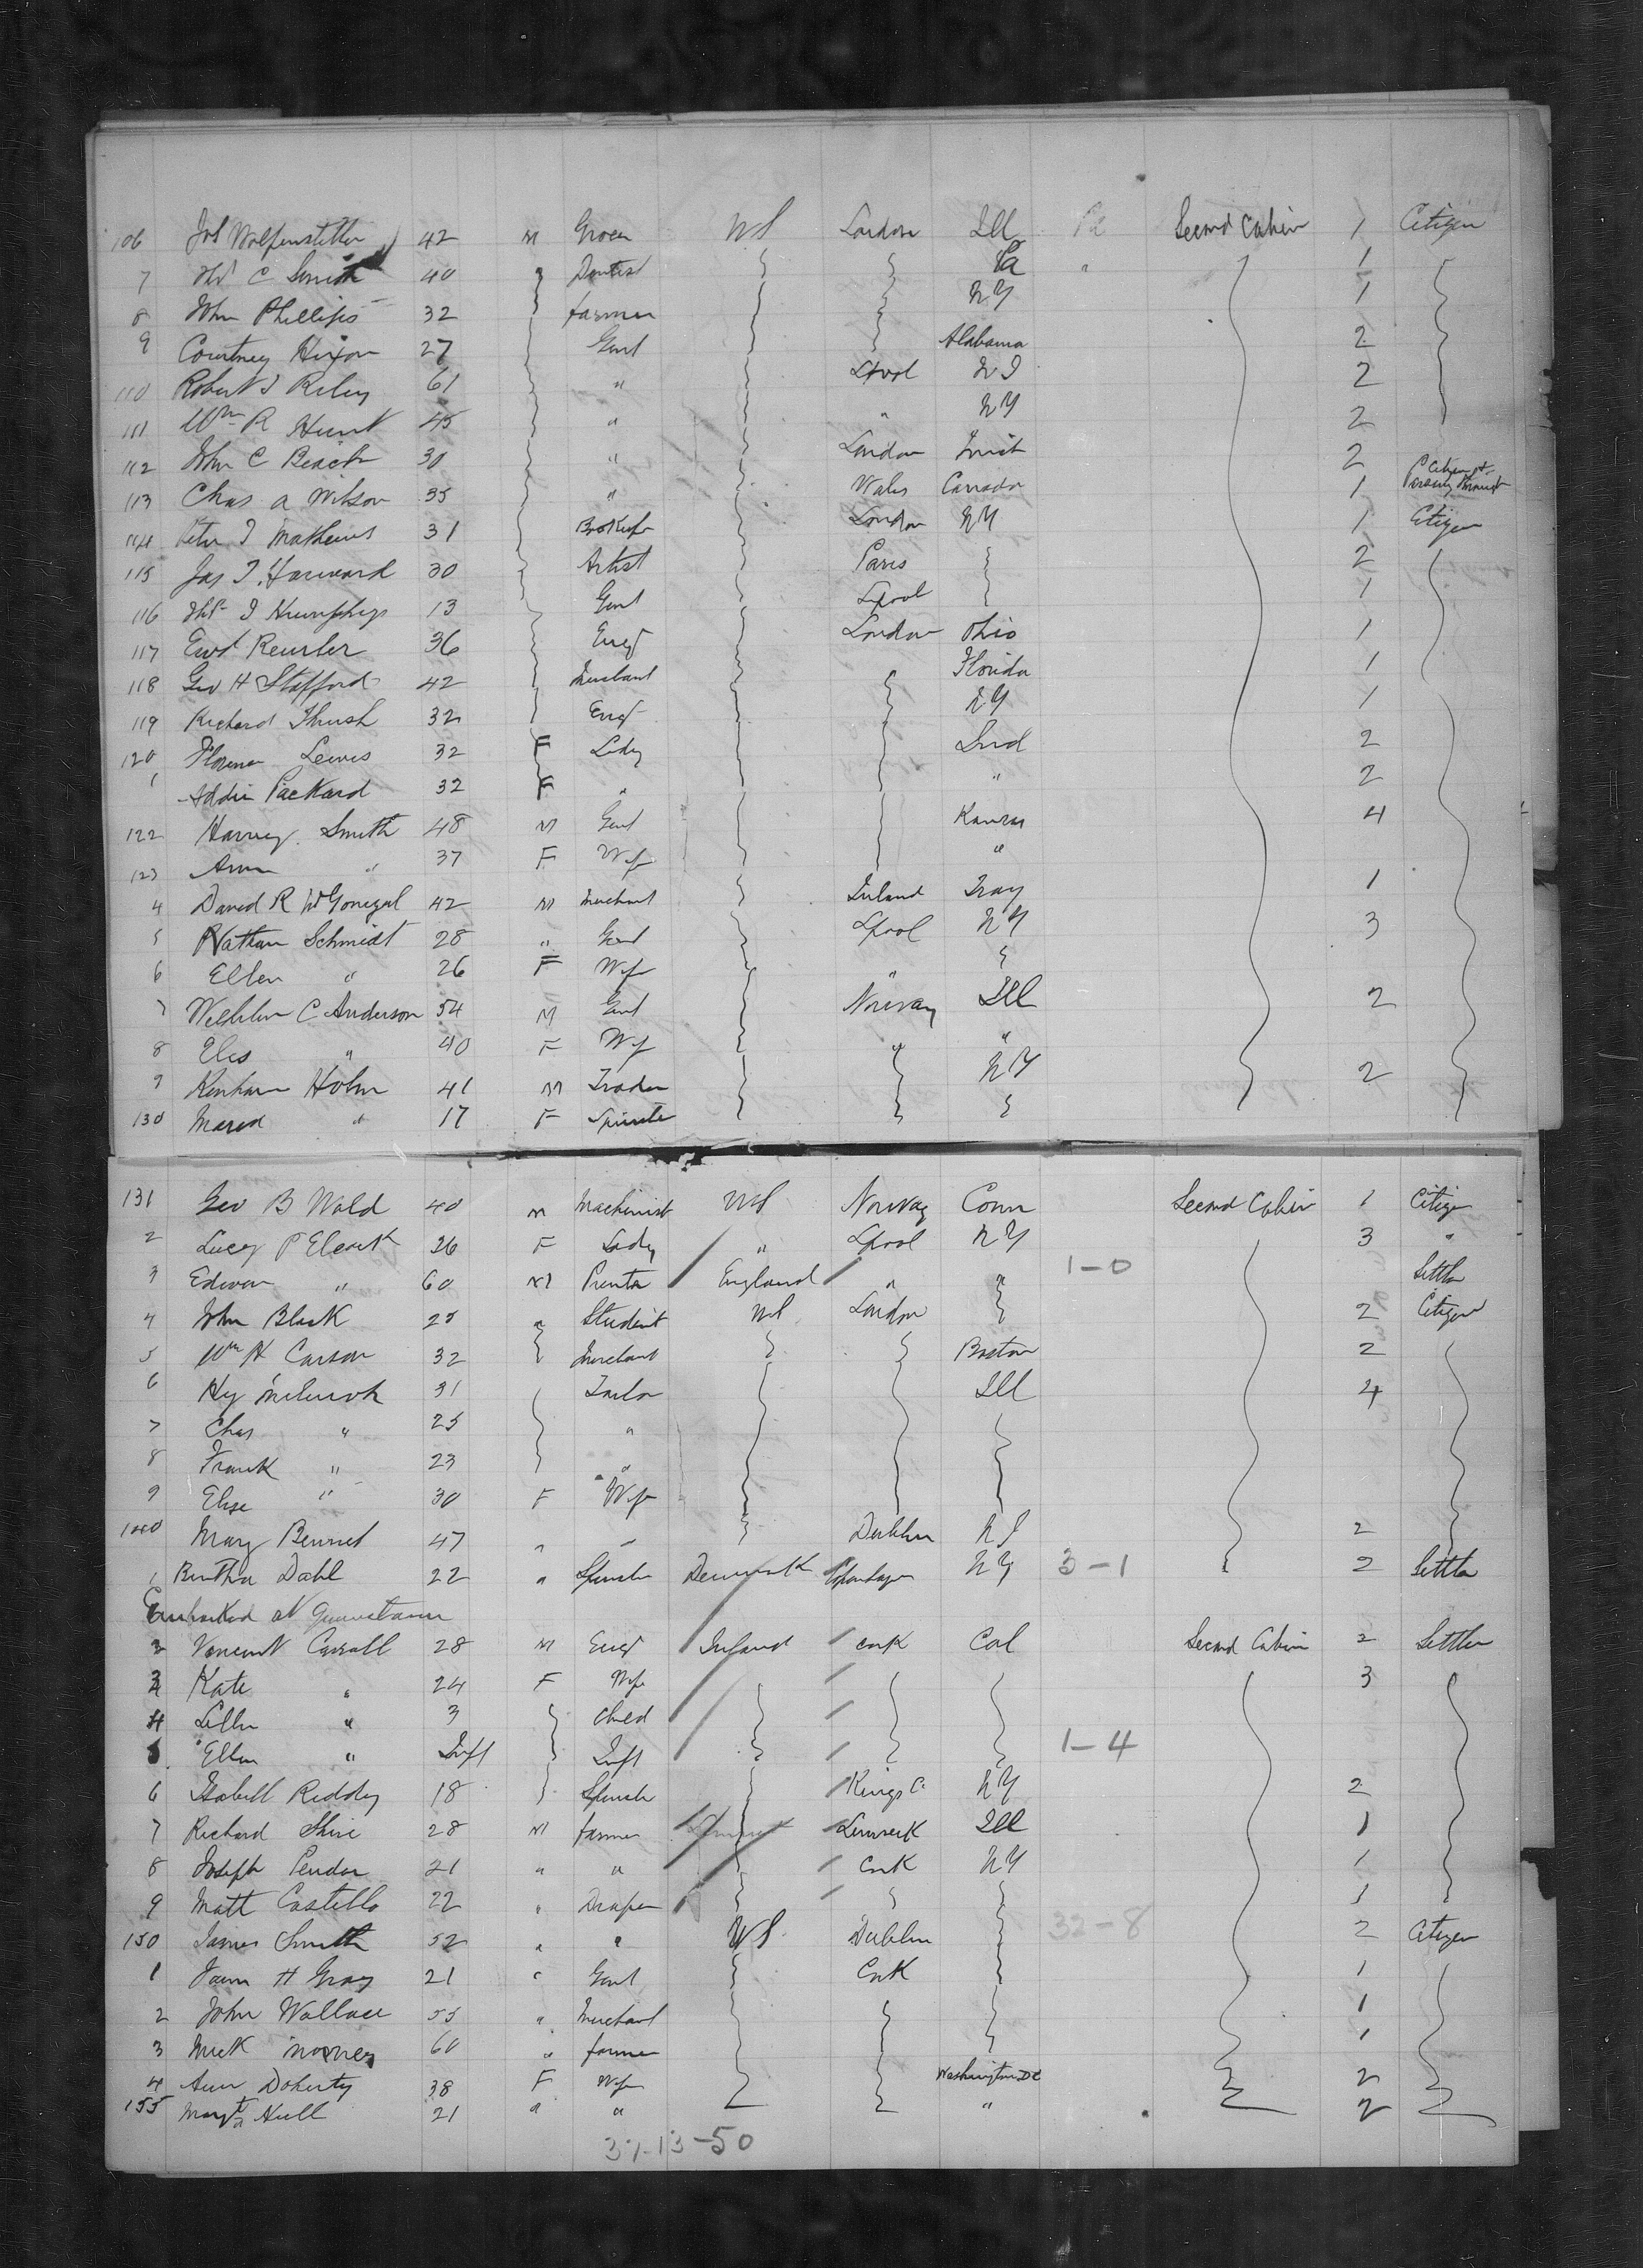 106 Jos Wolfenstetter 42 M Grocer US London Ill Pa Second Cabin 1 Citizen
7 C Smith 40 " Dentist Pa " 1
8 John Phillips 32 farmer NY 1
9 Courtney Hixon 27 Gent Alabama 2
110 Robert J Riley 61 " Lpool NJ 2
111 Wm R Hunt 45 " " NY 2
112 John C Beach 30 " London 2
113 Chas A Wilson 35 " Wales Canada 1 Citizen
114 Peter J Mathews 31 London NY 1 Citizen
115 Jas T. Harward 30 Artist Paris 2
116 J Humphreys 13 Gent Lpool 1
117 Ewd 36 Engr London Ohio 1
118 Geo H Stafford 42 Merchant Florida 1
119 Richard Thrush 32 Engr NY 1
120 Florence Lewis 32 F Lady Ind 2
1 Addie Packard 32 F " " 2
122 Harvey Smith 48 M Gent Kansas 4
123 Ann " 37 F Wife "
4 David R McGonegal 42 M Merchant Ireland Troy 1
5 Nathan Schmidt 28 " Gent Lpool NY 3
6 Ellen " 26 F Wife "
7 C Anderson 54 M Gent Norway Ill 2
8 Elis " 40 F Wife " "
9 Holm 41 M Trader NY 2
130 " 17 F Spinster
131 Geo B Wold 40 M Machinist US Norway Conn Second Cabin 1 Citizen
2 Lucy P 26 F Lady " Lpool NY 3 "
3 Edwin " 60 M Printer England " " 1-0 Settler
4 John Black 25 " Student US London 2 Citizen
5 Wm H Carson 32 Merchant Boston 2
6 Hy 31 Tailor Ill 4
7 Chas " 25 "
8 Frank " 23 "
9 Elise " 30 F Wife
140 Mary Bennet 47 " " Dublin NJ 2
1 Bertha Dahl 22 " Spinster Denmark Copenhagen NY 3-1 2 Settler
Embarked at Queenstown
2 Vincent Carroll 28 M Engr Ireland Cork Cal Second Cabin 2 Settler
3 Kate " 24 F Wife 3
4 " 3 Child
5 Ellen " Inft Inft 1-4
6 Isabell Reddy 18 Spinster Kings Co NY 2
7 Richard Shire 28 M farmer Limerick Ill 1
8 Joseph Pender 21 " " Cork NY 1
9 Matt Costello 22 " Draper 1
150 James Smith 52 " " US Dublin 32-8 2 Citizen
1 H Gray 21 " Gent Cork 1
2 John Wallace 55 " Merchant 1
3 Mick 60 " farmer 1
4 Ann Doherty 38 F Wife Washington DC 2
155 Margt Hull 21 " " " 2
37-13-50